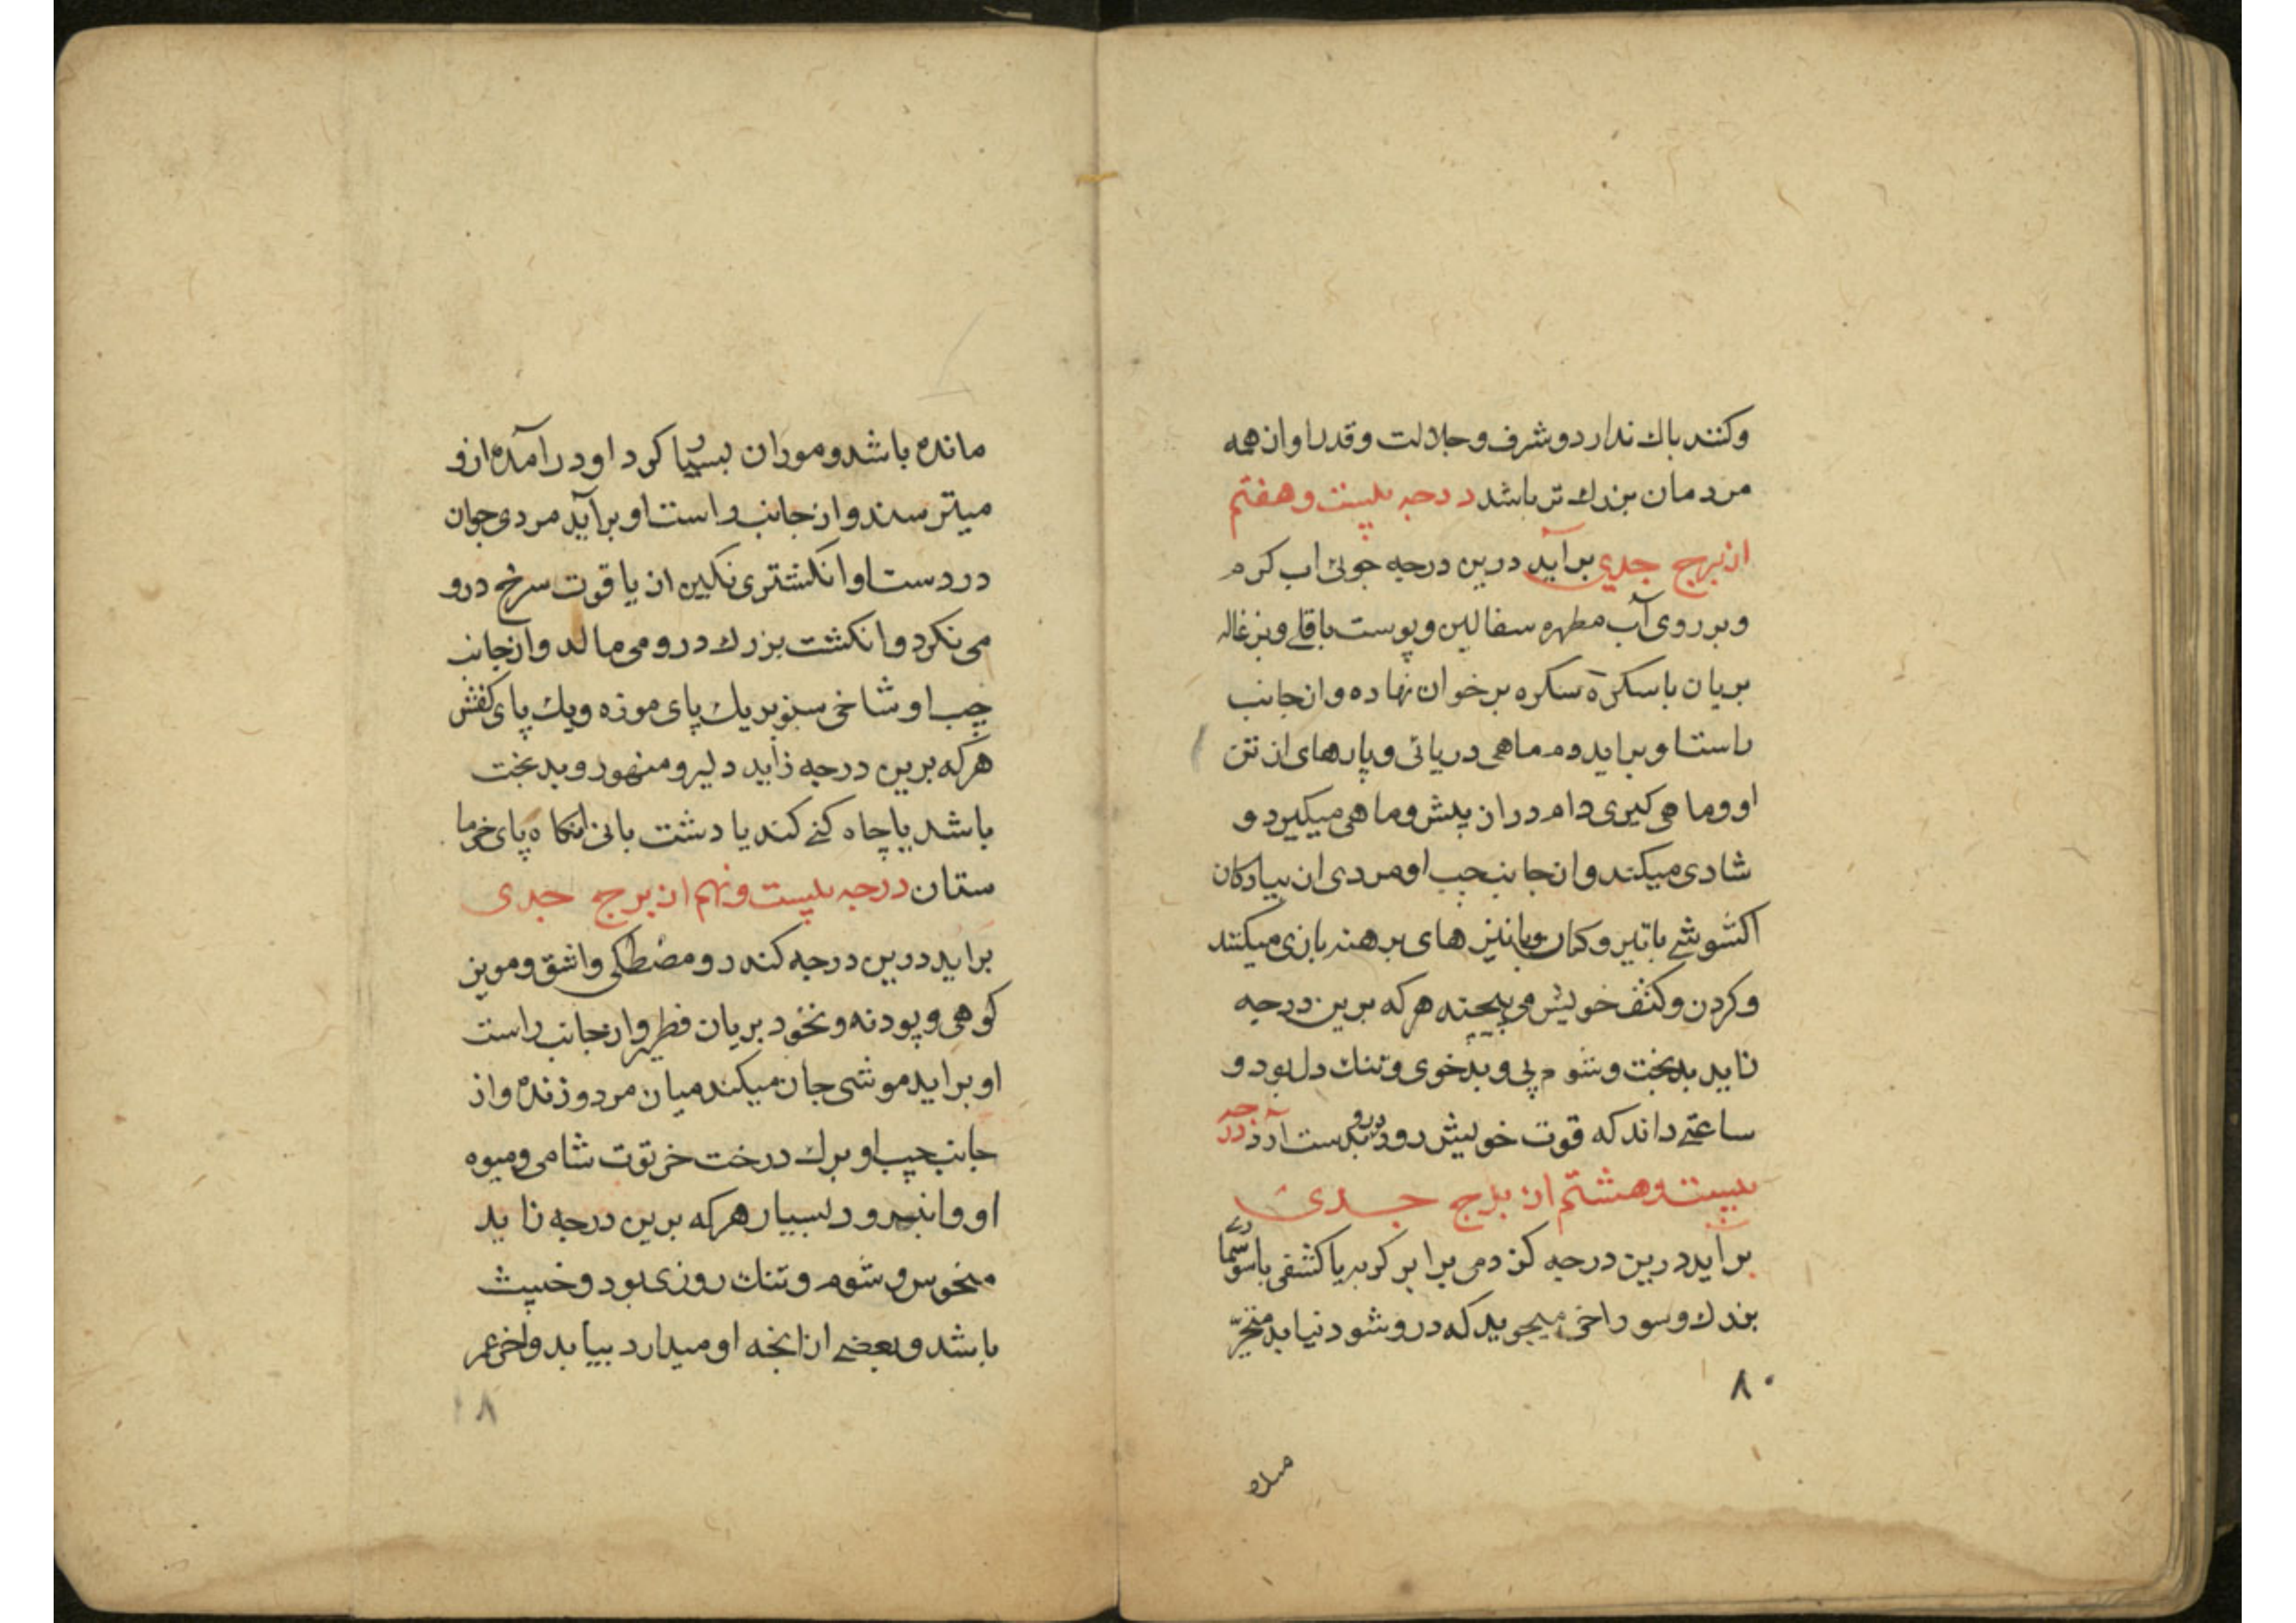 وکنند باك ندارد و شرف و جلالت و قدر او از همه
مردمان بزرك تر باشد درجه بیست و هفتم
از برج جدی برآید درین درجه جوئی اب کرم
و بر روی آب مطهره سفالین و پوست باقلے و بزغاله
بریان با سکرۀ سکره بر خوان نهاده و از جانب
راست او براید دم ماهی دریائی و پارهای از تن
او و ماهی کیری دام در ان پیش و ماهی میکیرد و
شادی میکند و از جانب چپ او مردی از پیادکان
با تیر و کمان و با نیزهای برهنه بازی میکنند
و کردن و کتف خویش می هر که برین درجه
زاید بدبخت و شوم پی و بدخوی و تنك دل بود و
ساعتے داند که قوت خویش رود بدست آرد درجه
بیست و هشتم از برج جدی
براید درین درجه کزدمی برابر کربه یا کشفی با
بزرك و سوراخی میجوید که درو شود نیابد متحیّر
٨٠
مانده باشد و موران بسیار کرد او درآمده ازو
میترسند و از جانب راست او برآید مردی جوان
در دست او انکشتری نکین از یاقوت سرخ درو
می نکرد و انکشت بزرك درو می مالد و از جانب
چپ او شاخی سبز بر یك پای موزه و یك پای کفش
هر که برین درجه زاید دلیر و متهور و بدبخت
باشد یا چاه کنے کند یا دشت بانی پای خرما
ستان درجه بیست و نهم از برج جدی
براید درین درجه کندر و مصطکی و اشق و مویز
کوهی و پودنه و نخود بریان و از جانب راست
او براید موشی جان میکند میان مرده و زنده و از
جانب چپ او برك درخت خرتوت شامی و میوه
او و انبرود بسیار هر که برین درجه زاید
منحوس و شوم و تنك روزی بود و خبیث
باشد و بعضے از انچه او میدارد بیابد و اخر عمر
٨١